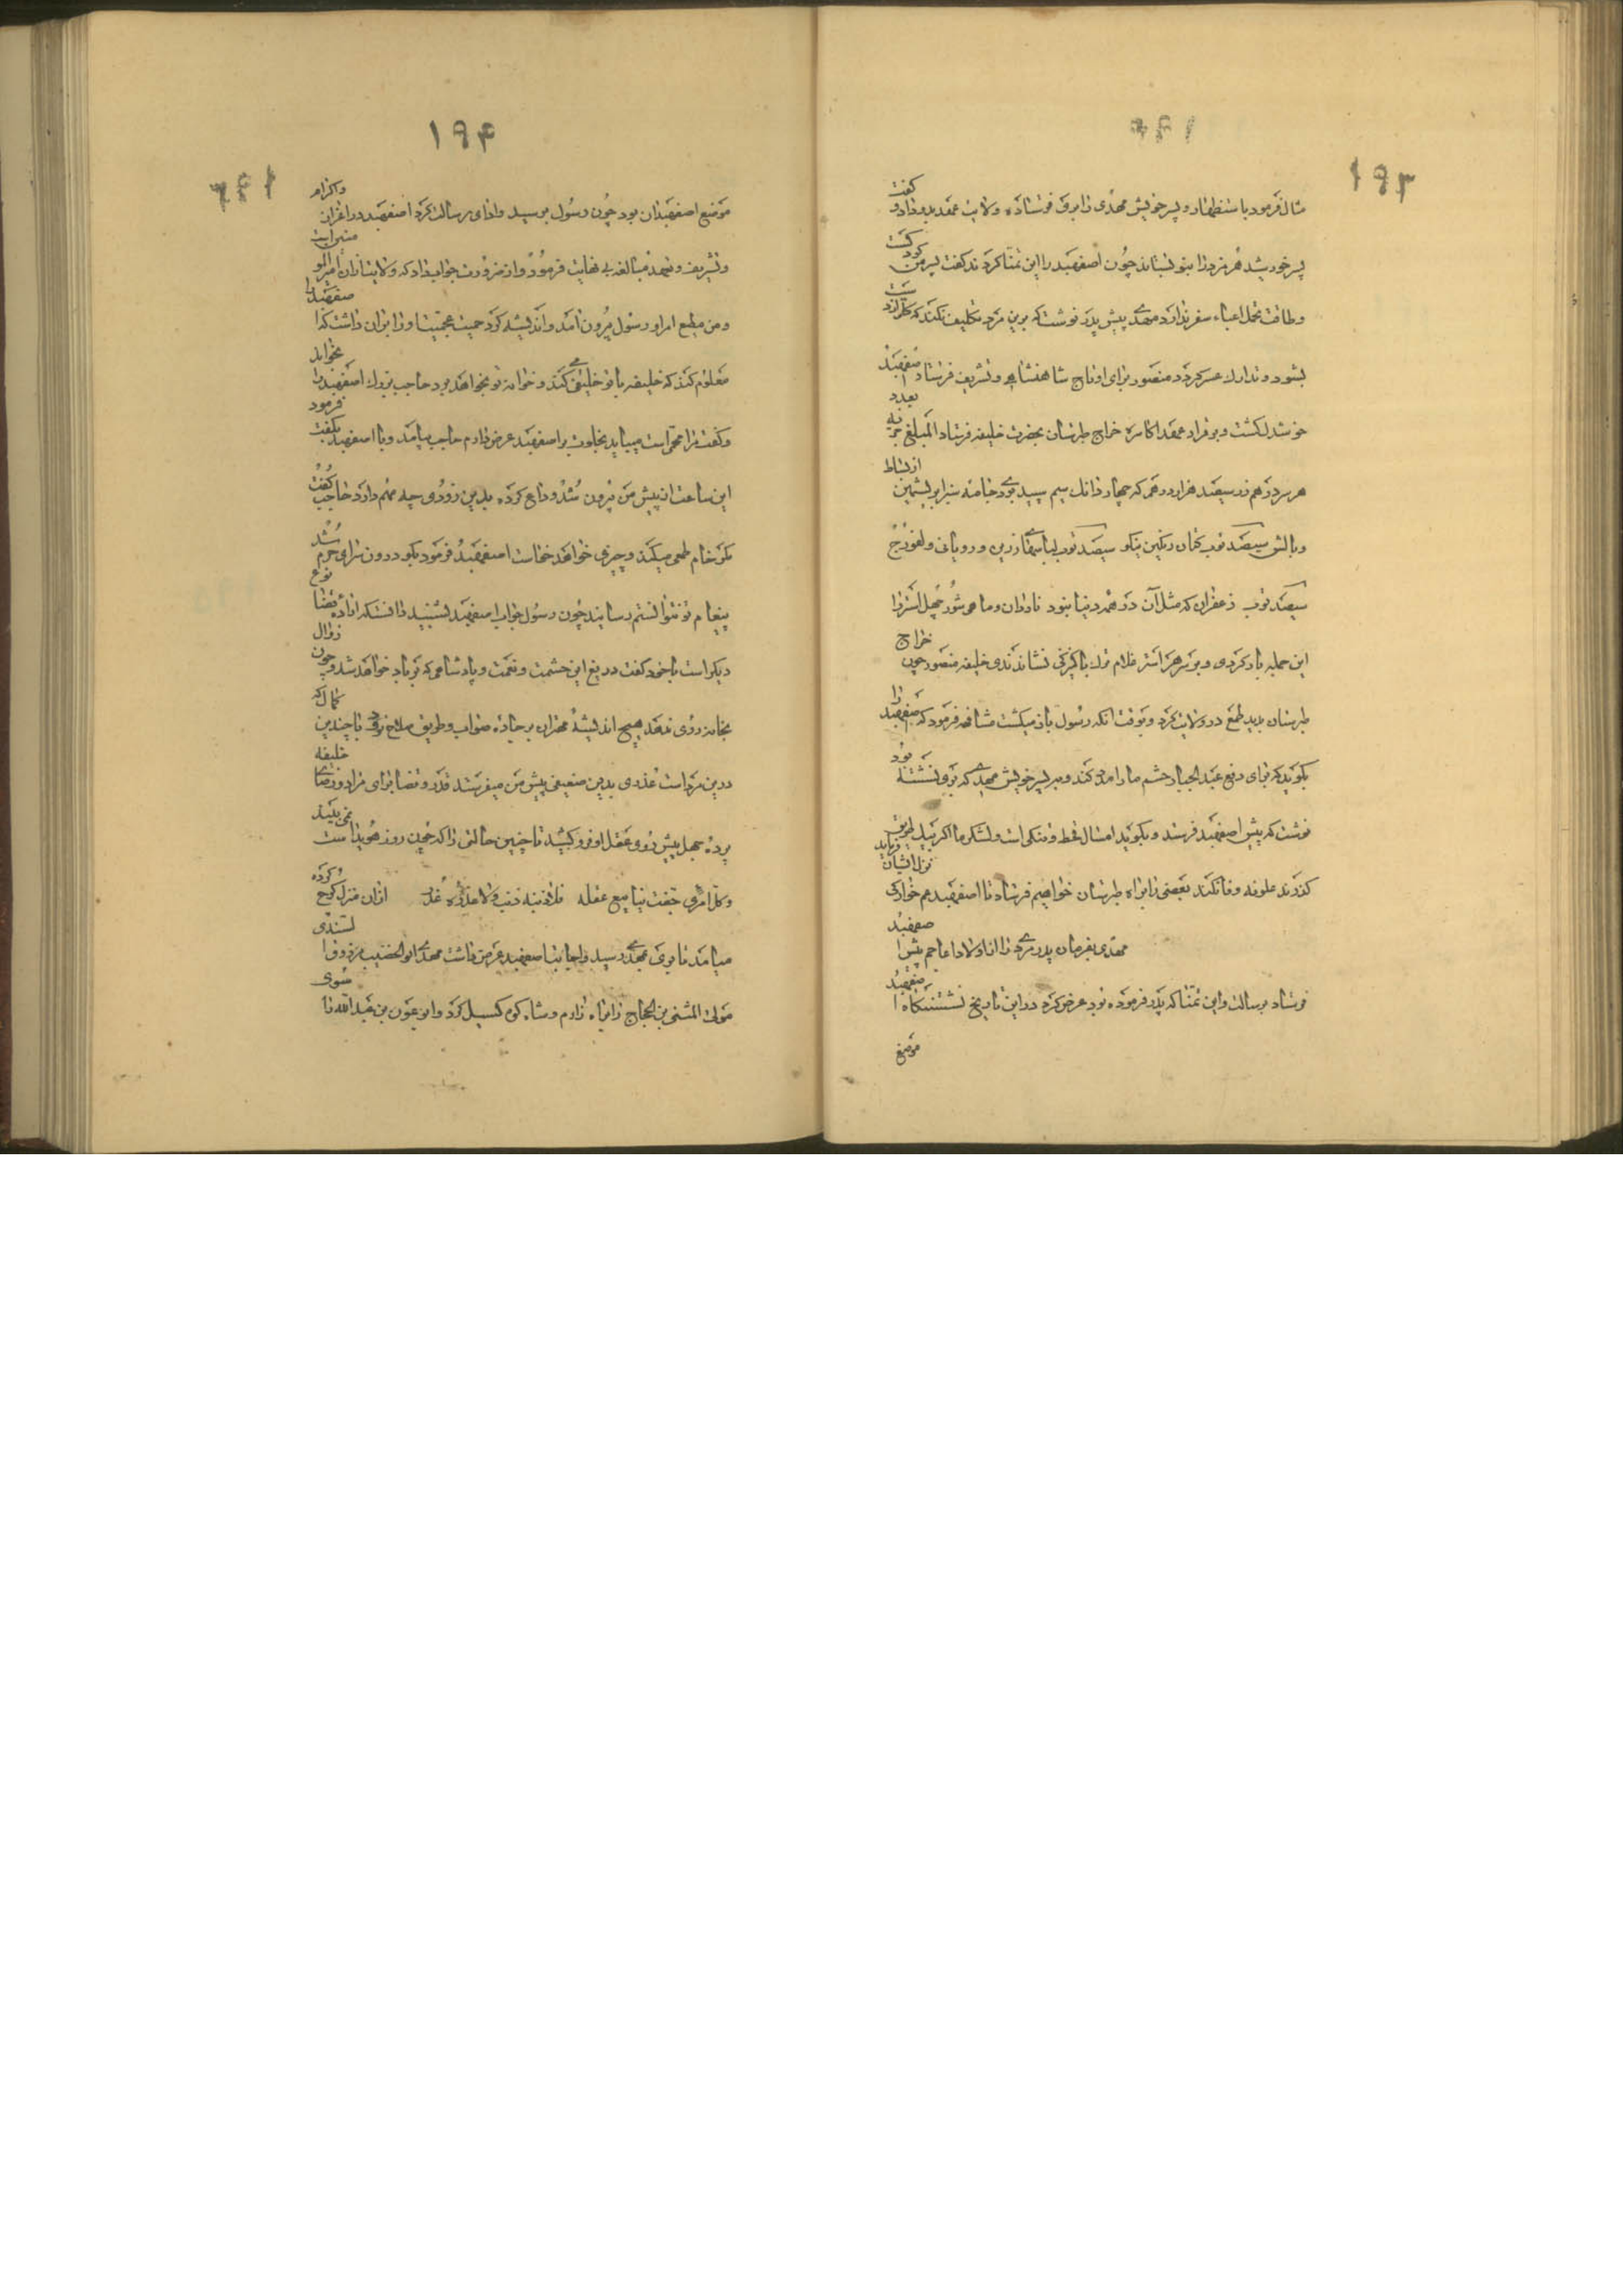 ۱۹۳
مثال فرمود باستظهار و پسر خویش مهدی را بری فرستاده و ولایت عهد بدو داد و گفت
پسر خورشید هرمزد را بنوا بستاند چون اصفهبد را این تمنا کردند گفت پسر من کودکست
و طاقت تحمل اعباء سفر ندارد مهدی پیش پدر نوشت که برین مرد تکلیف نکند که
بشود و تدارک عسر گردد منصور برای او تاج شاهنشاهی و تشریف فرستاد اصفهبد
خوشدل گشت و بر قرار عهد اکاسره خراج طبرستان بحضرت خلیفه فرستاد المبلغ
هر سر درهم زر سیصد هزار درهم که چهار دانگ سیم سپید بودی جامه سبز ابریشمین از بساط
و بالش سیصد ثوب کتان رنگین نیکو سیصد ثوب لباسهای زرین و رویانی و لفورج
سیصد ثوب زعفران که مثل آن در همه دنیا نبود ناردان و ماهی شور چهل استر را
این جمله بار کردی و بر سر هر استر غلام ترک یا کنیزکی نشاندندی خلیفه منصور چون خراج
طبرستان بدید طمع در ولایت کرد و بوقت آنکه رسول باز میگشت مشافهه فرمود که اصفهبد را
بگوید که برای دفع عبد الجبار حشم ما را مدد کند و بر پسر خویش مهدی که بری نشسته بود
نوشت که پیش اصفهبد فرستد و بگوید امسال قحط و تنگی است و لشکر ما اگر بیک طریق
گذرند علوفه وفا نکند بعضی را براه طبرستان خواهیم فرستاد تا اصفهبد هم خوار نزل ایشان
مهدی بفرمان پدر مردی را از اولاد اعاجم پیش اصفهبد
فرستاد برسالت و این تمنا که پدر فرموده بود عرض کرد در این تاریخ نشستنگاه اصفهبد
موضع
۱۹۴
موضع اصفهبدان بود چون رسول برسید و ادای رسالت کرد اصفهبد در اعزاز و اکرام
و تشریف و تعهد مبالغه بی نهایت فرمود و از ضرورت جواب داد که ولایت از آن امیر المومنین است
و من مطیع امر او رسول بیرون آمد و اندیشه کرد حمیت عجمیت او را بر آن داشت که اصفهبد را
معلوم کند که خلیفه با تو خلیفی می کند و خانه تو بخواهد برد حاجب بزرگ اصفهبد را بخواند
و گفت مرا مهمی است میباید بخلوت بر اصفهبد عرض دارم حاجب بیامد و با اصفهبد بگفت فرمود
این ساعت از پیش من بیرون شد و وداع کرده بدین زودی چه مهم دارد حاجب گفت
مگر خام طمعی میکند و چیزی خواهد خواست اصفهبد فرمود بگو در درون سرای حرم شد
پیغام تو نتوانستم رسانید چون رسول جواب اصفهبد بشنید دانست که از آن نوع قضا
دیگر است با خود گفت دریغ این حشمت و نعمت و پادشاهی که بر باد خواهد شد و چون زوال
بخانه روی نهد هیچ اندیشه مهران بر جاده صواب و طریق صلاح نرود با چندین کمال که
درین مرد است عذری بدین ضعیفی پیش من میفرستد قدر و قضا برای مراد و رضای خلیفه
پرده جهل پیش روی عقل او فرو کشید تا چنین حالتی را که چون روز هویداست نمی بیند
از آن منزل کوچ کرده
میامد تا بری بمهدی رسید
مولی المثنی بن الحجاج را براه زارم و شاه کوه گسیل کرد و ابو عون بن عبد الله را سوی